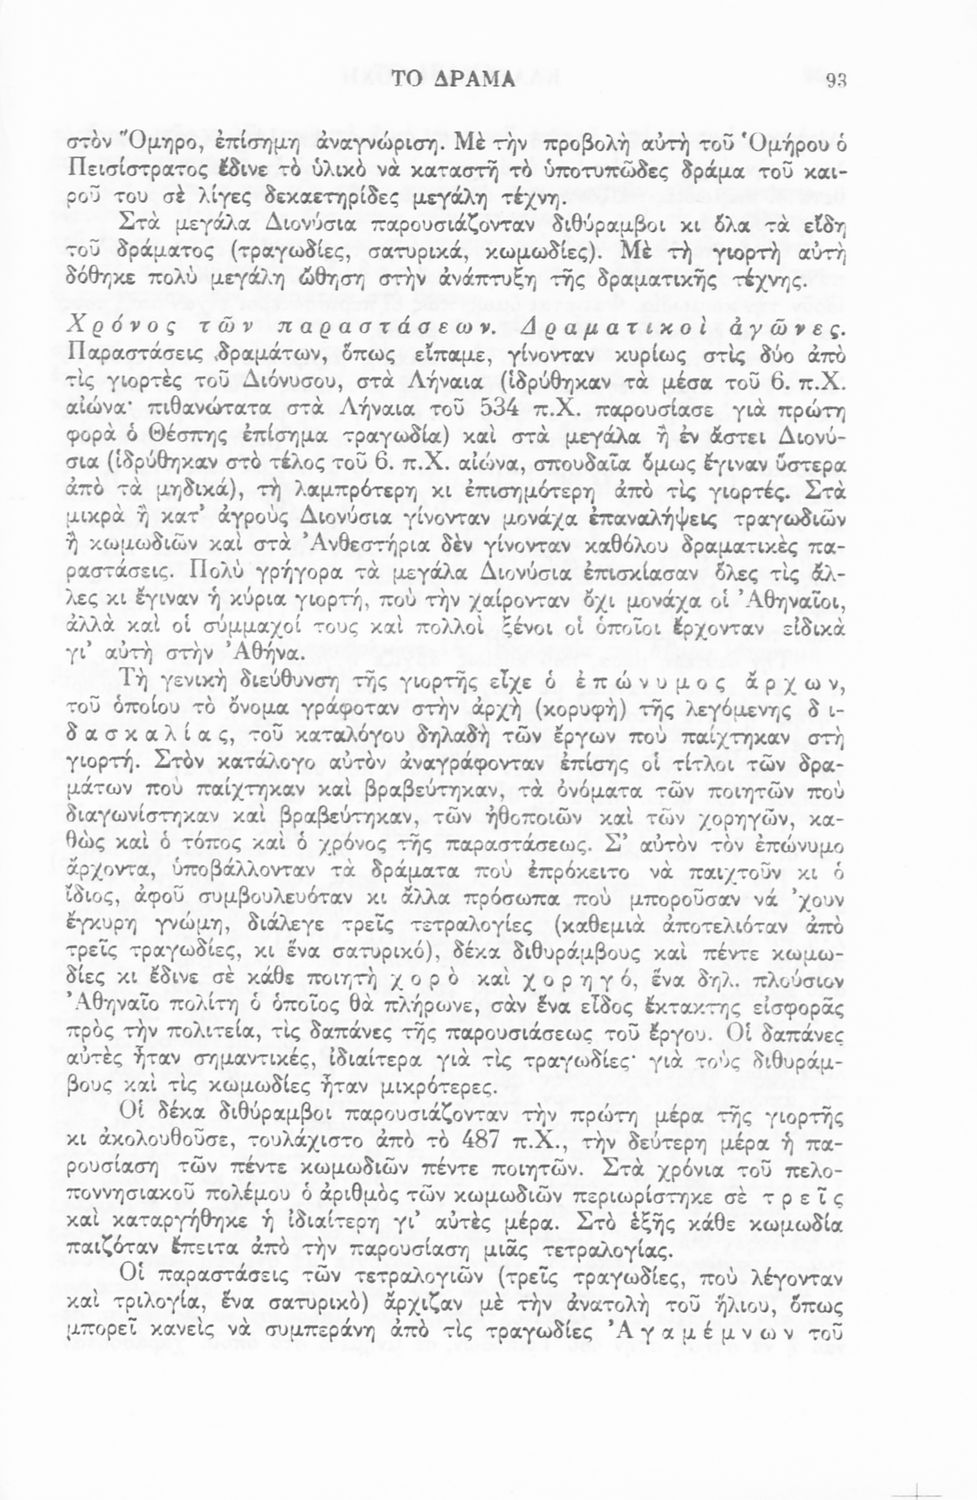 ΤΟ ΔΡΑΜΑ 93
στὸν Ὅμηρο, ἐπίσημη ἀναγνώριση. Μὲ τὴν προβολὴ αὐτὴ τοῦ Ὁμήρου ὁ
Πεισίστρατος ἔδινε τὸ ὑλικὸ νὰ καταστῆ τὸ ὑποτυπῶδες δράμα τοῦ και-
ροῦ του σὲ λίγες δεκαετηρίδες μεγάλη τέχνη.
Στὰ μεγάλα Διονύσια παρουσιάζονταν διθύραμβοι κι ὅλα τὰ εἴδη
τοῦ δράματος (τραγωδίες, σατυρικά, κωμωδίες). Μὲ τὴ γιορτὴ αὐτὴ
δόθηκε πολὺ μεγάλη ὤθηση στὴν ἀνάπτυξη τῆς δραματικῆς τέχνης.
Χρόνος τῶν παραστάσεων. Δραματικοὶ ἀγῶνες.
Παραστάσεις δραμάτων, ὅπως εἴπαμε, γίνονταν κυρίως στὶς δύο ἀπὸ
τὶς γιορτὲς τοῦ Διόνυσου, στὰ Λήναια (ἱδρύθηκαν τὰ μέσα τοῦ 6. π.Χ.
αἰώνα· πιθανώτατα στὰ Λήναια τοῦ 534 π.Χ. παρουσίασε γιὰ πρώτη
φορὰ ὁ Θέσπης ἐπίσημα τραγωδία) καὶ στὰ μεγάλα ἢ ἐν ἄστει Διονύ-
σια (ἱδρύθηκαν στὸ τέλος τοῦ 6. π.Χ. αἰώνα, σπουδαῖα ὅμως ἔγιναν ὕστερα
ἀπὸ τὰ μηδικά), τὴ λαμπρότερη κι ἐπισημότερη ἀπὸ τὶς γιορτές. Στὰ
μικρὰ ἢ κατ' ἀγροὺς Διονύσια γίνονταν μονάχα ἐπαναλήψεις τραγωδιῶν
ἢ κωμωδιῶν καὶ στὰ Ἀνθεστήρια δὲν γίνονταν καθόλου δραματικὲς πα-
ραστάσεις. Πολὺ γρήγορα τὰ μεγάλα Διονύσια ἐπισκίασαν ὅλες τὶς ἄλ-
λες κι ἔγιναν ἡ κύρια γιορτή, ποὺ τὴν χαίρονταν ὄχι μονάχα οἱ Ἀθηναῖοι,
ἀλλὰ καὶ οἱ σύμμαχοί τους καὶ πολλοὶ ξένοι οἱ ὁποῖοι ἔρχονταν εἰδικὰ
γι' αὐτὴ στὴν Ἀθήνα.
Τὴ γενικὴ διεύθυνση τῆς γιορτῆς εἶχε ὁ ἐπώνυμος ἄρχων,
τοῦ ὁποίου τὸ ὄνομα γράφοταν στὴν ἀρχὴ (κορυφὴ) τῆς λεγόμενης δι-
δασκαλίας, τοῦ καταλόγου δηλαδὴ τῶν ἔργων ποὺ παίχτηκαν στὴ
γιορτή. Στὸν κατάλογο αὐτὸν ἀναγράφονταν ἐπίσης οἱ τίτλοι τῶν δρα-
μάτων ποὺ παίχτηκαν καὶ βραβεύτηκαν, τὰ ὀνόματα τῶν ποιητῶν ποὺ
διαγωνίστηκαν καὶ βραβεύτηκαν, τῶν ἠθοποιῶν καὶ τῶν χορηγῶν, κα-
θὼς καὶ ὁ τόπος καὶ ὁ χρόνος τῆς παραστάσεως. Σ' αὐτὸν τὸν ἐπώνυμο
ἄρχοντα, ὑποβάλλονταν τὰ δράματα ποὺ ἐπρόκειτο νὰ παιχτοῦν κι ὁ
ἴδιος, ἀφοῦ συμβουλευόταν κι ἄλλα πρόσωπα ποὺ μποροῦσαν νά 'χουν
ἔγκυρη γνώμη, διάλεγε τρεῖς τετραλογίες (καθεμιὰ ἀποτελιόταν ἀπὸ
τρεῖς τραγωδίες, κι ἕνα σατυρικό), δέκα διθυράμβους καὶ πέντε κωμω-
δίες κι ἔδινε σὲ κάθε ποιητὴ χορὸ καὶ χορηγό, ἕνα δηλ. πλούσιον
Ἀθηναῖο πολίτη ὁ ὁποῖος θὰ πλήρωνε, σὰν ἕνα εἶδος ἔκτακτης εἰσφορᾶς
πρὸς τὴν πολιτεία, τὶς δαπάνες τῆς παρουσιάσεως τοῦ ἔργου. Οἱ δαπάνες
αὐτὲς ἦταν σημαντικές, ἰδιαίτερα γιὰ τὶς τραγωδίες· γιὰ τοὺς διθυράμ-
βους καὶ τὶς κωμωδίες ἦταν μικρότερες.
Οἱ δέκα διθύραμβοι παρουσιάζονταν τὴν πρώτη μέρα τῆς γιορτῆς
κι ἀκολουθοῦσε, τουλάχιστο ἀπὸ τὸ 487 π.Χ., τὴν δεύτερη μέρα ἡ πα-
ρουσίαση τῶν πέντε κωμωδιῶν πέντε ποιητῶν. Στὰ χρόνια τοῦ πελο-
ποννησιακοῦ πολέμου ὁ ἀριθμὸς τῶν κωμωδιῶν περιωρίστηκε σὲ τρεῖς
καὶ καταργήθηκε ἡ ἰδιαίτερη γι' αὐτὲς μέρα. Στὸ ἑξῆς κάθε κωμωδία
παιζόταν ἔπειτα ἀπὸ τὴν παρουσίαση μιᾶς τετραλογίας.
Οἱ παραστάσεις τῶν τετραλογιῶν (τρεῖς τραγωδίες, ποὺ λέγονταν
καὶ τριλογία, ἕνα σατυρικὸ) ἄρχιζαν μὲ τὴν ἀνατολὴ τοῦ ἥλιου, ὅπως
μπορεῖ κανεὶς νὰ συμπεράνη ἀπὸ τὶς τραγωδίες Ἀγαμέμνων τοῦ